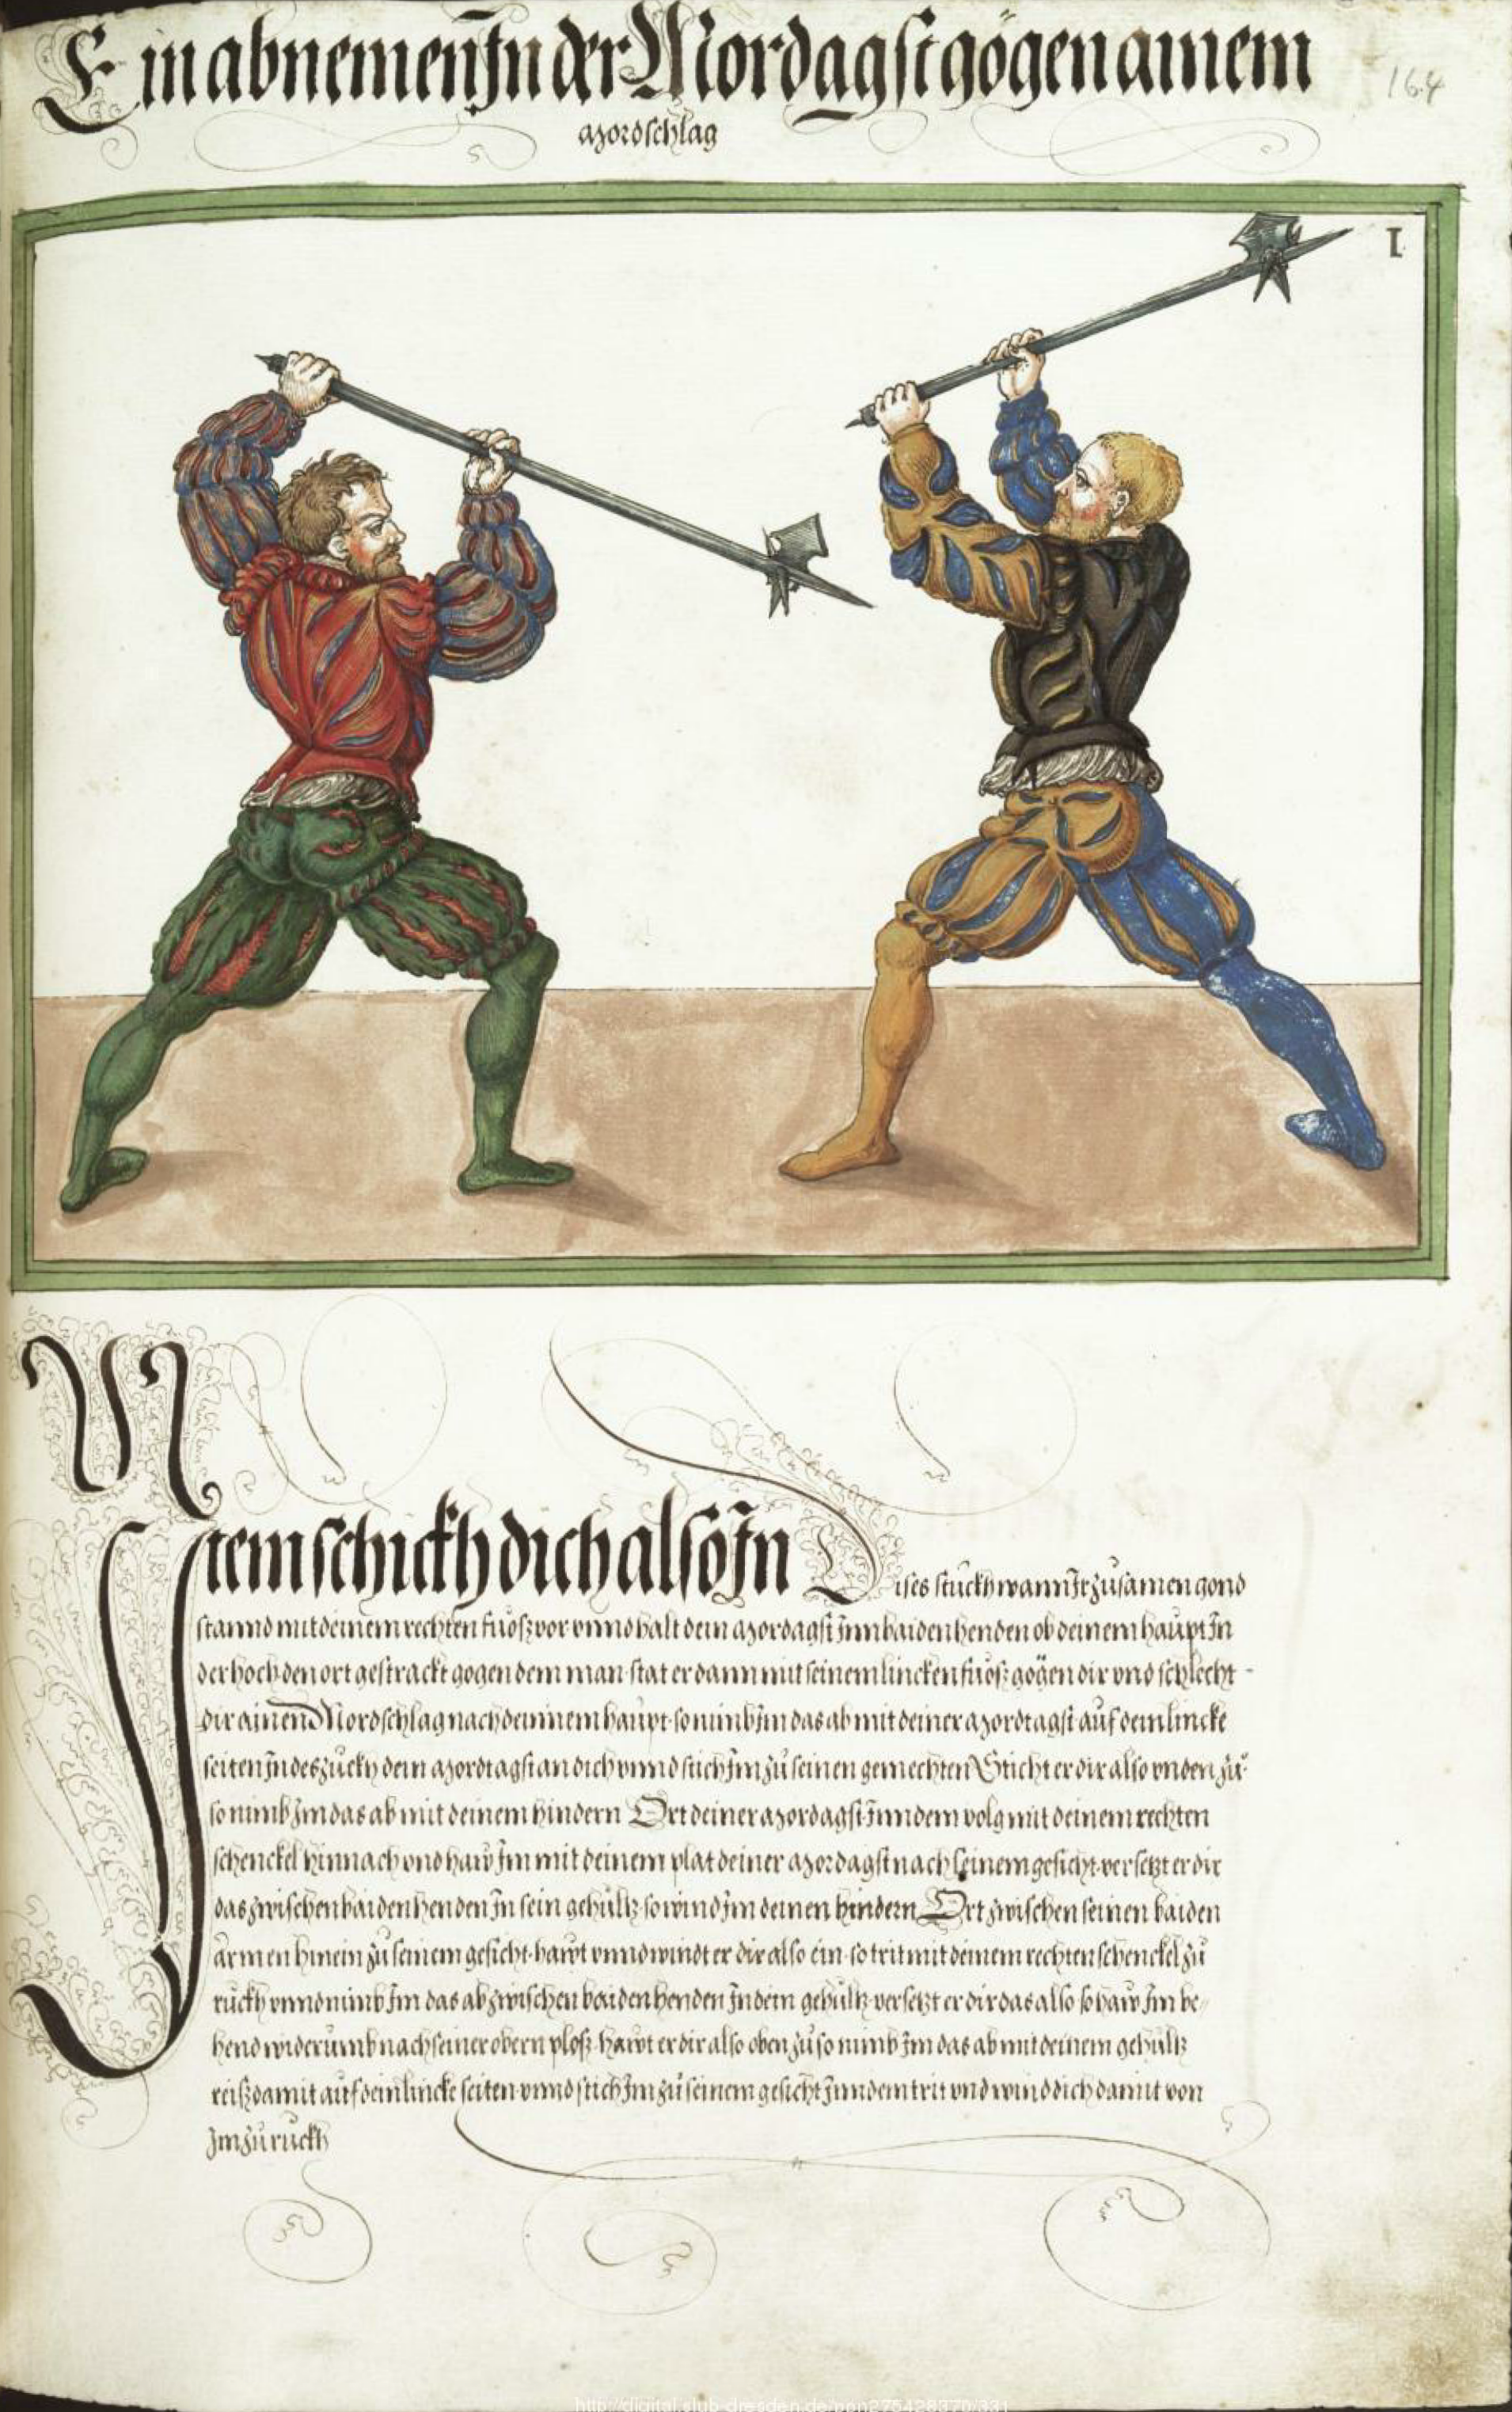 Ein abnemen Jn der Mordagst gögen ainem
mordschlag
164
1
Jtem schickh dich also Jn Dises stuckh wann Jr zůsamen gond
stannd mit deinem rechten fuosz vor vnnd halt dein mordagst Jnn baiden henden ob deinem haupt Jn
der hoch den ort gestrackt gogen dem man stat er dann mit seinem lincken fuosz gögen dir vnd schlecht
dir ainen Mordschlag nach deinnem haupt so nimb Jm das ab mit deiner mordtagst auf dein lincke
seiten Jn des zuckh dein mordtagst an dich vnnd stich Jm zů seinen gemechten Sticht er dir also vnden zů
so nimb Jm das ab mit deinem hindern Ort deiner mordagst Jnn dem volg mit deinem rechten
schenckel hinnach vnd haw Jm mit deinem plat deiner mordagst nach seinem gesicht versetzt er dir
das zwischen baiden henden Jn sein gehültz so wind Jm deinen hindern Ort zwischen seinen baiden
armen hinein zů seinem gesicht hawt vnnd windt er dir also ein so trit mit deinem rechten schenckel zů
ruckh vnnd nimb Jm das ab zwischen baiden henden Jn dein gehültz versetzt er dir das also so haw Jm be
hend widerumb nach seiner obern plosz hawt er dir also oben zů so nimb Jm das ab mit deinem gehültz
reisz damit auf dein lincke seiten vnnd stich Jm zů seinem gesicht Jnn dem trit vnd wind dich damit von
Jm zůruckh
http://digital.slub-dresden.de/ppn275428370/331